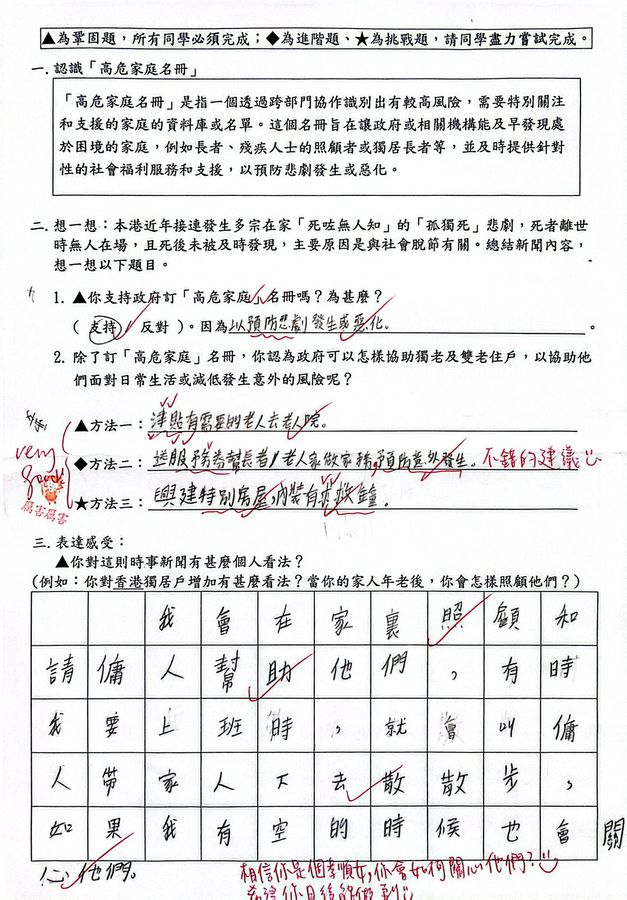 ▲為鞏固題，所有同學必須完成；◆為進階題、★為挑戰題，請同學盡力嘗試完成。
一. 認識「高危家庭名冊」
「高危家庭名冊」是指一個透過跨部門協作識別出有較高風險，需要特別關注
和支援的家庭的資料庫或名單。這個名冊旨在讓政府或相關機構能及早發現處
於困境的家庭，例如長者、殘疾人士的照顧者或獨居長者等，並及時提供針對
性的社會福利服務和支援，以預防悲劇發生或惡化。
二. 想一想：本港近年接連發生多宗在家「死咗無人知」的「孤獨死」悲劇，死者離世
時無人在場，且死後未被及時發現，主要原因是與社會脫節有關。總結新聞內容，
想一想以下題目。
1. ▲你支持政府訂「高危家庭」名冊嗎？為甚麼？
（支持 / 反對）。因為以預防悲劇發生或惡化。。
2. 除了訂「高危家庭」名冊，你認為政府可以怎樣協助獨老及雙老住戶，以協助他
們面對日常生活或減低發生意外的風險呢？
▲方法一：津貼有需要的老人去老人院。
very
good
◆方法二：送服務券幫長者/老人家做家務,預防意外發生。不錯的建議
厲害厲害
★方法三：興建特別房屋,內裝有求救鐘.
三. 表達感受：
▲你對這則時事新聞有甚麼個人看法？
(例如：你對香港獨居戶增加有甚麼看法？當你的家人年老後，你會怎樣照顧他們？)
我會在家裏照顧和
請傭人幫助他們，有時
我要上班時，就會叫傭
人帶家人下去散散步，
如果我有空的時候也會關
心他們。
相信你是個孝順女,你會如何關心他們?
希望你日後能做到